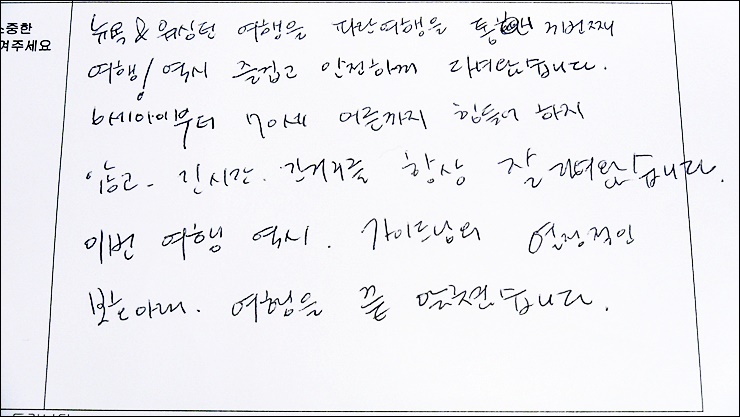 소중한
겨주세요
뉴욕 & 워싱턴 여행을 파란여행을 통해 7번째
여행! 역시 즐겁고 안전하게 다녀왔습니다.
6세아이부터 70세 어른까지 힘들어 하지
않고. 긴시간. 긴거리를 항상 잘 다녀왔습니다.
이번 여행 역시. 가이드님의 열정적인
보호아래. 여행을 끝